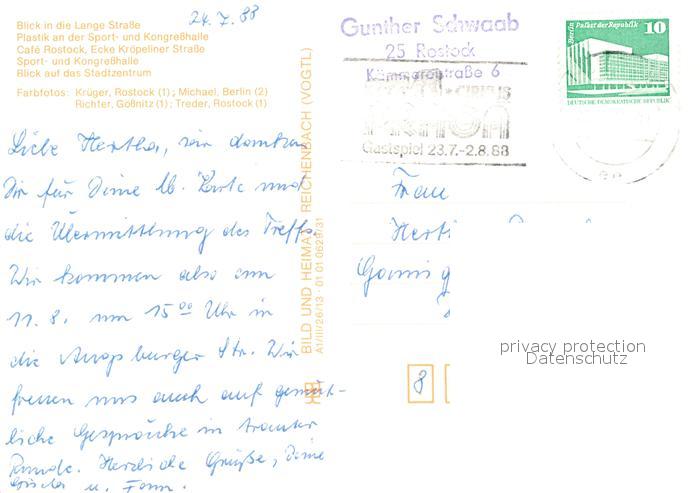 Blick in die Lange Straße
Plastik an der Sport- und Kongreßhalle
Café Rostock, Ecke Kröpeliner Straße
Sport- und Kongreßhalle
Blick auf das Stadtzentrum
Farbfotos: Krüger, Rostock (1); Michael, Berlin (2)
Richter, Gößnitz (1); Treder, Rostock (1)
24.7.88
Liebe Hertha, wir danken
Dir für Deine lb. Karte und
die Übermittlung des Treffs.
Wir kommen also am
11.8. um 15⁰⁰ Uhr in
die Augsburger Str. Wir
freuen uns auch auf gemüt-
liche Gespräche in trauter
Runde. Herzliche Grüße, Deine
u. Fam.
BILD UND HEIMAT REICHENBACH (VOGTL)
A1/III/26/13 · 01 01 0629/31
Gunther Schwaab
25 Rostock
Kämmereistraße 6
Gastspiel 23.7.-2.8.88
Berlin Palast der Republik
10
DEUTSCHE DEMOKRATISCHE REPUBLIK
Frau
8
privacy protection
Datenschutz